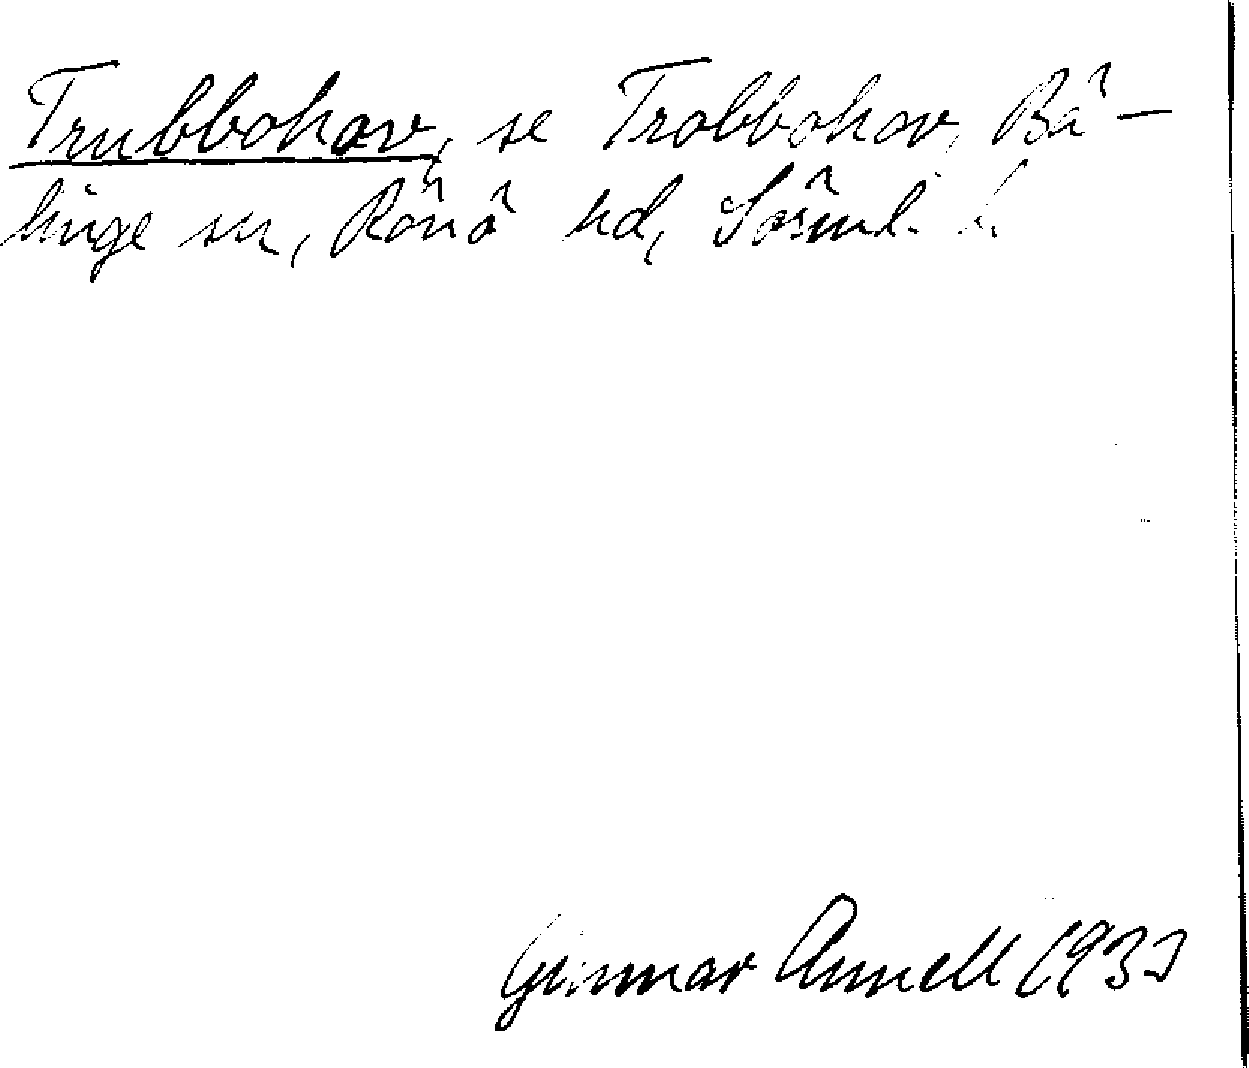 Trubbohov, se Trobbohov, Bä-
linge sn, Rönö hd, Sörml. l.
Gunnar Annell 1937